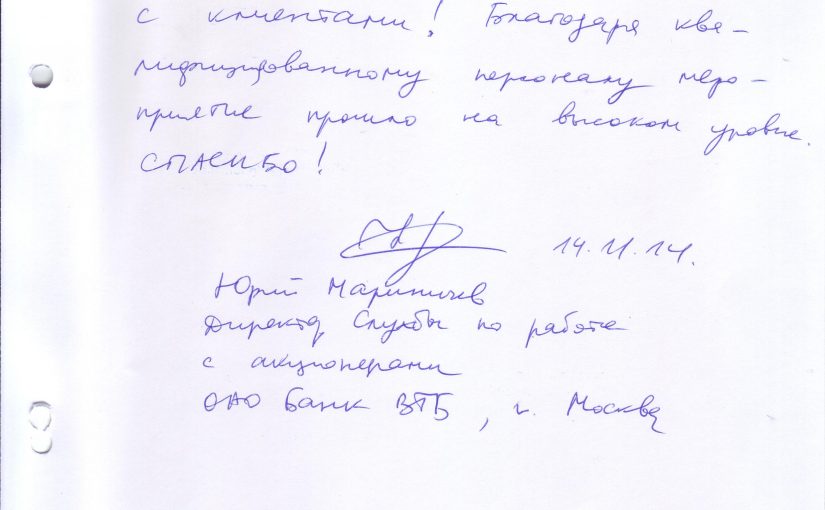 с клиентами! Благодаря ква-
лифицированному персоналу меро-
приятие прошло на высоком уровне.
СПАСИБО!
14.11.14.
Юрий Маринычев
Директор Службы по работе
с акционерами
ОАО Банк ВТБ, г. Москва